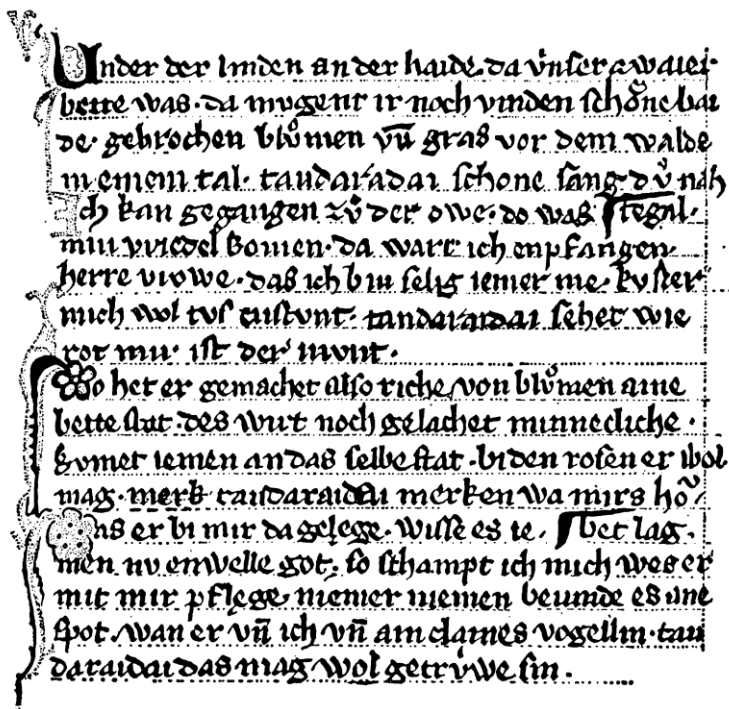 Under der linden an der haide da vnser zwaier
bette was · da mugent ir noch vinden schone bai
de · gebrochen blůmen vñ gras vor dem walde
in einem tal · tandaradai schone sang dů nah
Ich kan gegangen zů der owe · do was tegal ·
min vriedel komen · da wart ich enpfangen ·
herre vrowe · das ich bin selig iemer me · kvster
mich wol tvs entstvnt · tandaraidai sehet wie
rot mir ist der mvnt ·
Do het er gemachet also riche von blůmen aine
bette stat · des wirt noch gelachet minnecliche ·
kvmet iemen an das selbe stat · bi den rosen er wol
mag · merk tandaraidei merken wa mirs hő
Das er bi mir da gelege · wisse es ie bet lag ·
men nv enwelle got · so schampt ich mich wes er
mit mir pflege niemer niemen bevinde es ane
spot · wan er vñ ich vñ ain claines vogellin · tan
daraidai das mag wol getrůwe sin ·